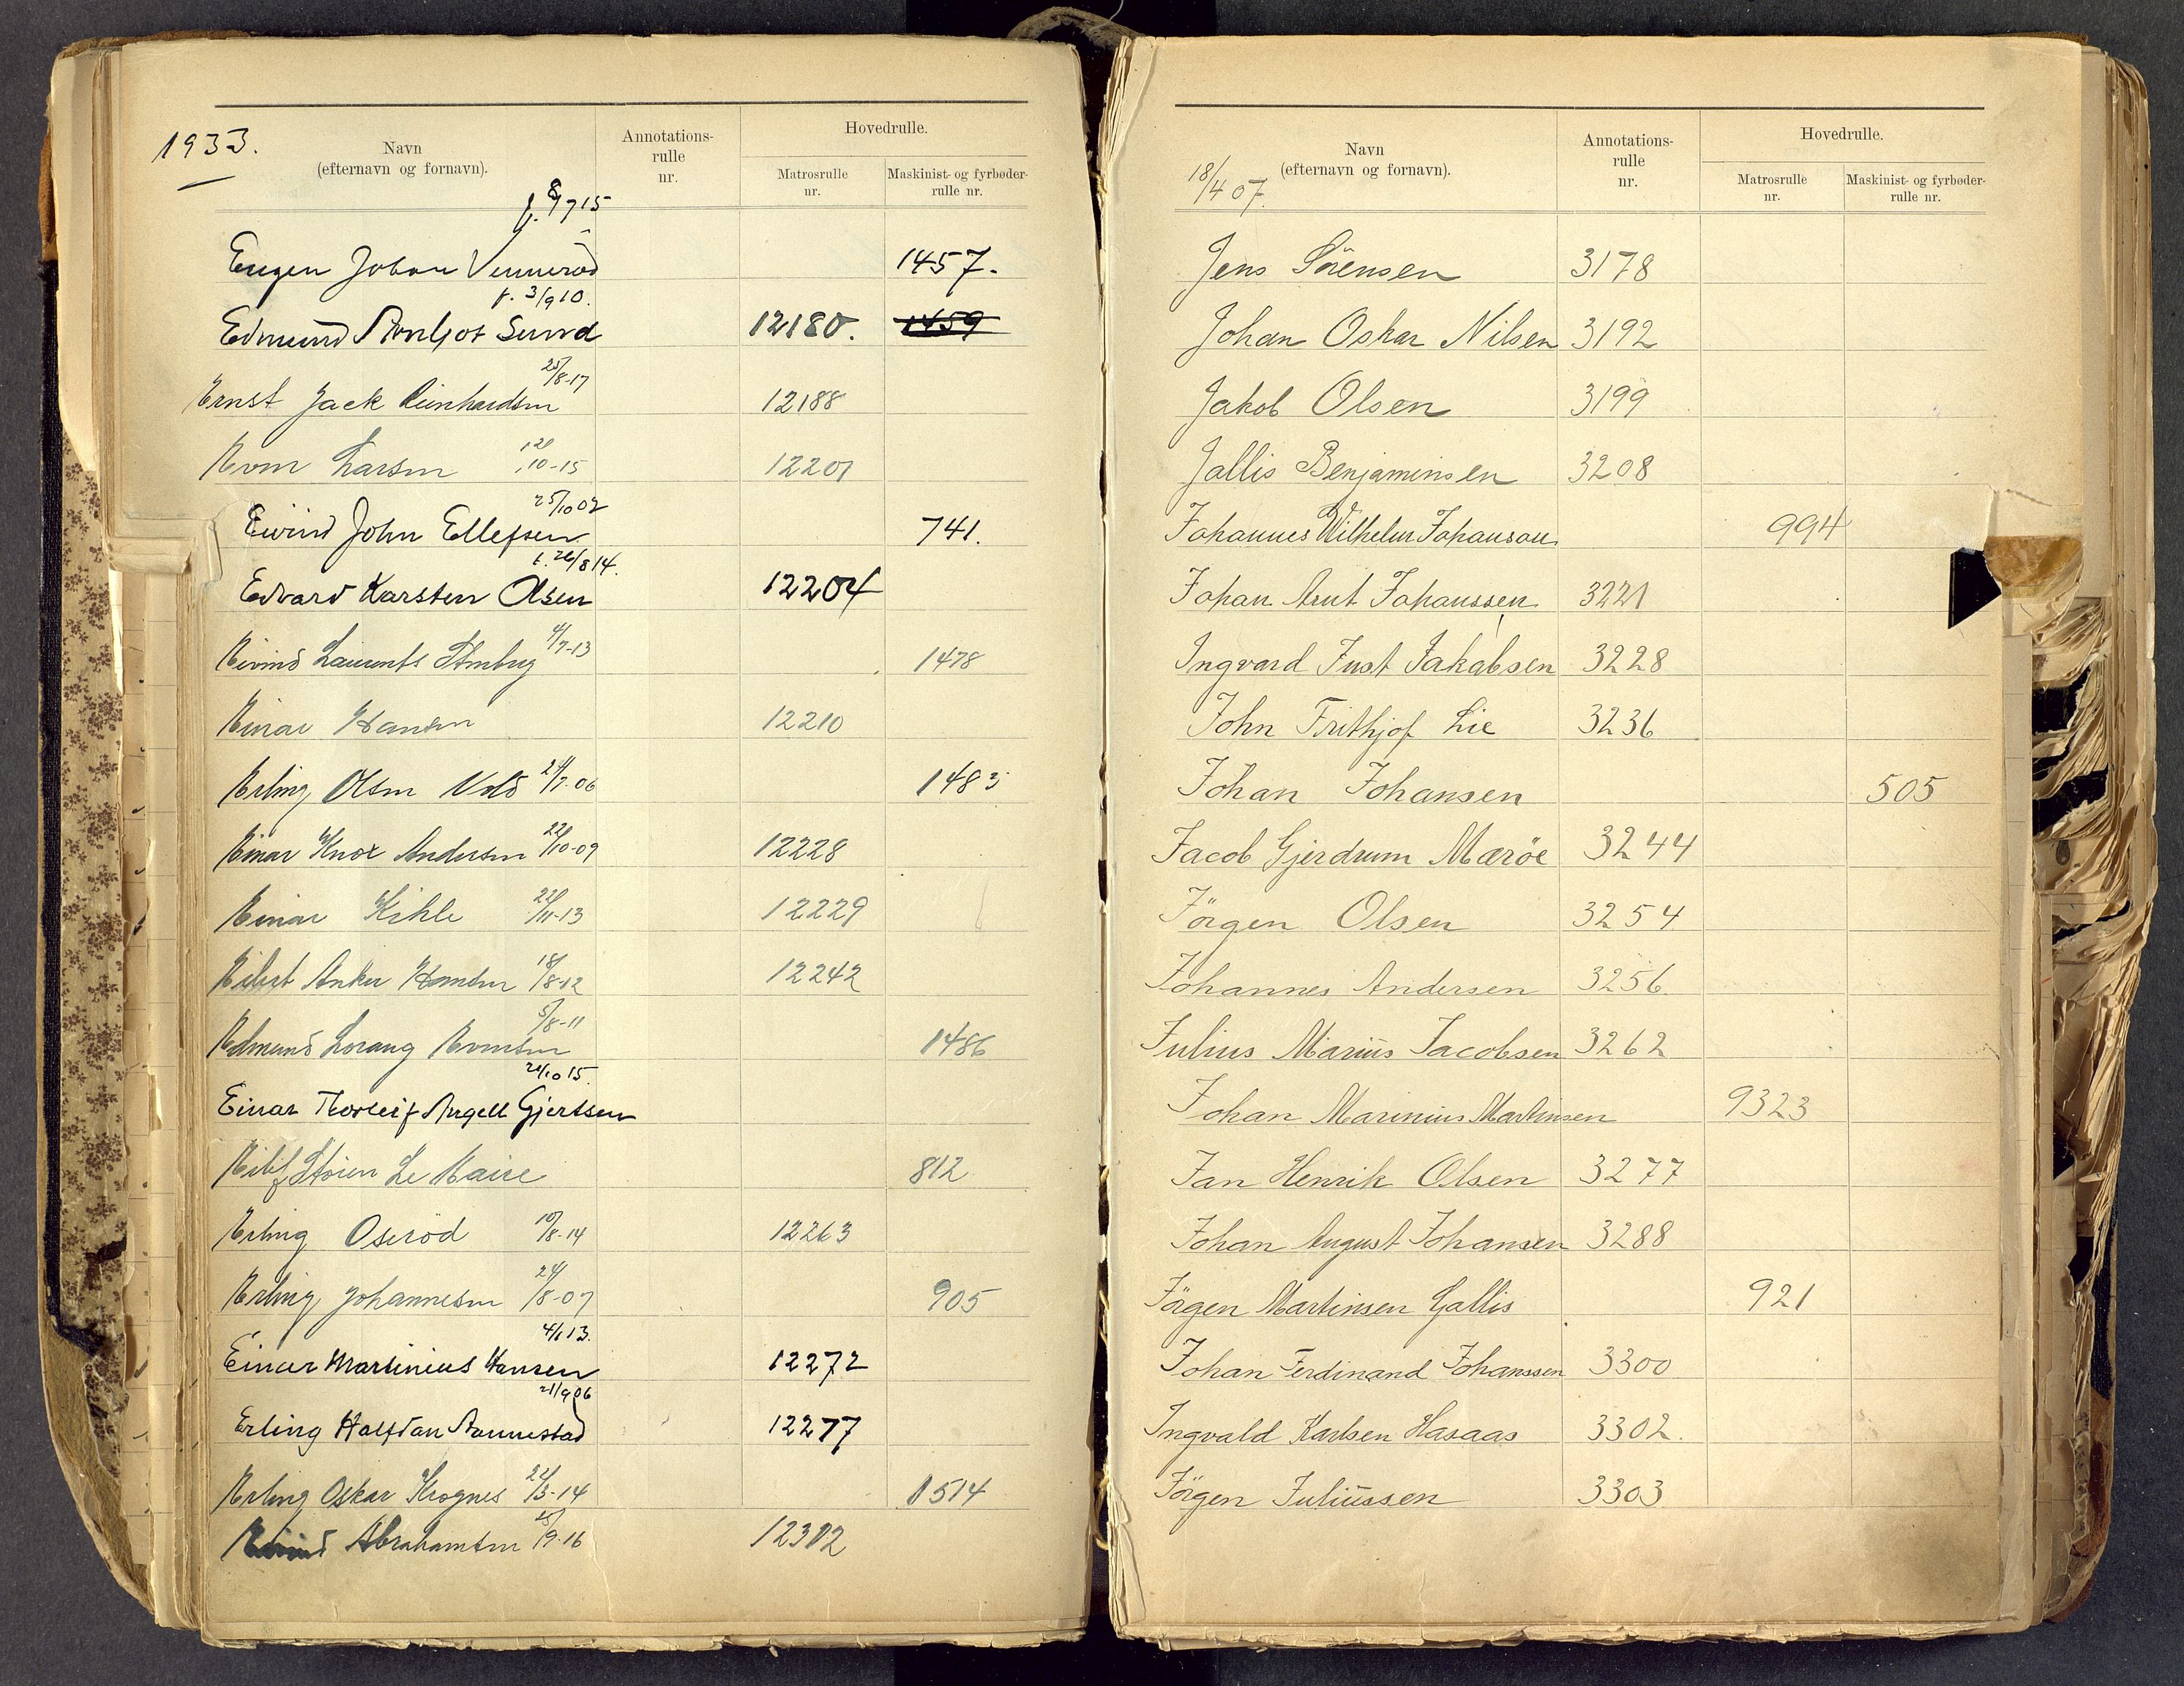 1933.
Navn
(efternavn og fornavn).
Annotations-
rulle
nr.
Hovedrulle.
Matrosrulle
nr.
Maskinist- og fyrbøder-
rulle nr.
f. 8/7 15
Eugen Johan Vennerød 1457.
f. 3/9 10.
Edmund Sund 12180. 1459
25/8-17
Ernst Jack Reinhardsen 12188
Even Larsen 12/10-15 12201
25/10 02
Eivind John Ellefsen 741.
f. 26/8 14.
Edvard Karsten Olsen 12204
Eivind Laurents 4/7-13 1478
Einar Hansen 12210
Erling Olsen Vold 24/7-06 1483
Einar Knox Andersen 22/10-09 12228
Einar Kihle 22/11-13 12229
Eilert Anker Hansen 18/8-12 12242
5/8-11
Edmund Lorang Evensen 1486
24/10 15.
Einar Thorleif Angell Gjertsen
Eilif Støren Le Maire 812
Erling Oserød 10/8-14 12263
Erling Johannesen 24/8-07 905
4/1 13.
Einar Martinius Hansen 12272
21/9 06
Erling Halfdan Aannestad 12277
Erling Oskar Krognes 22/3-14 1514
Eivind Abrahamsen 25/9-16 12302
18/4 07.
Navn
(efternavn og fornavn).
Annotations-
rulle
nr.
Hovedrulle.
Matrosrulle
nr.
Maskinist- og fyrbøder-
rulle nr.
Jens Sörensen 3178
Johan Oskar Nilsen 3192
Jakob Olsen 3199
Jallis Benjaminsen 3208
Johannes Wilhelm Johanson 994
Johan Arnt Johanssen 3221
Ingvard Just Jakobsen 3228
John Frithjof Lie 3236
Johan Johansen 505
Jacob Gjerdrum Maröe 3244
Jörgen Olsen 3254
Johannes Andersen 3256.
Julius Marius Jacobsen 3262
Johan Marinius Martinsen 9323
Jan Henrik Olsen 3277
Johan August Johansen 3288
Jörgen Martinsen Gallis 921
Johan Ferdinand Johanssen 3300
Ingvald Karlsen Hasaas 3302.
Jörgen Juliussen 3303